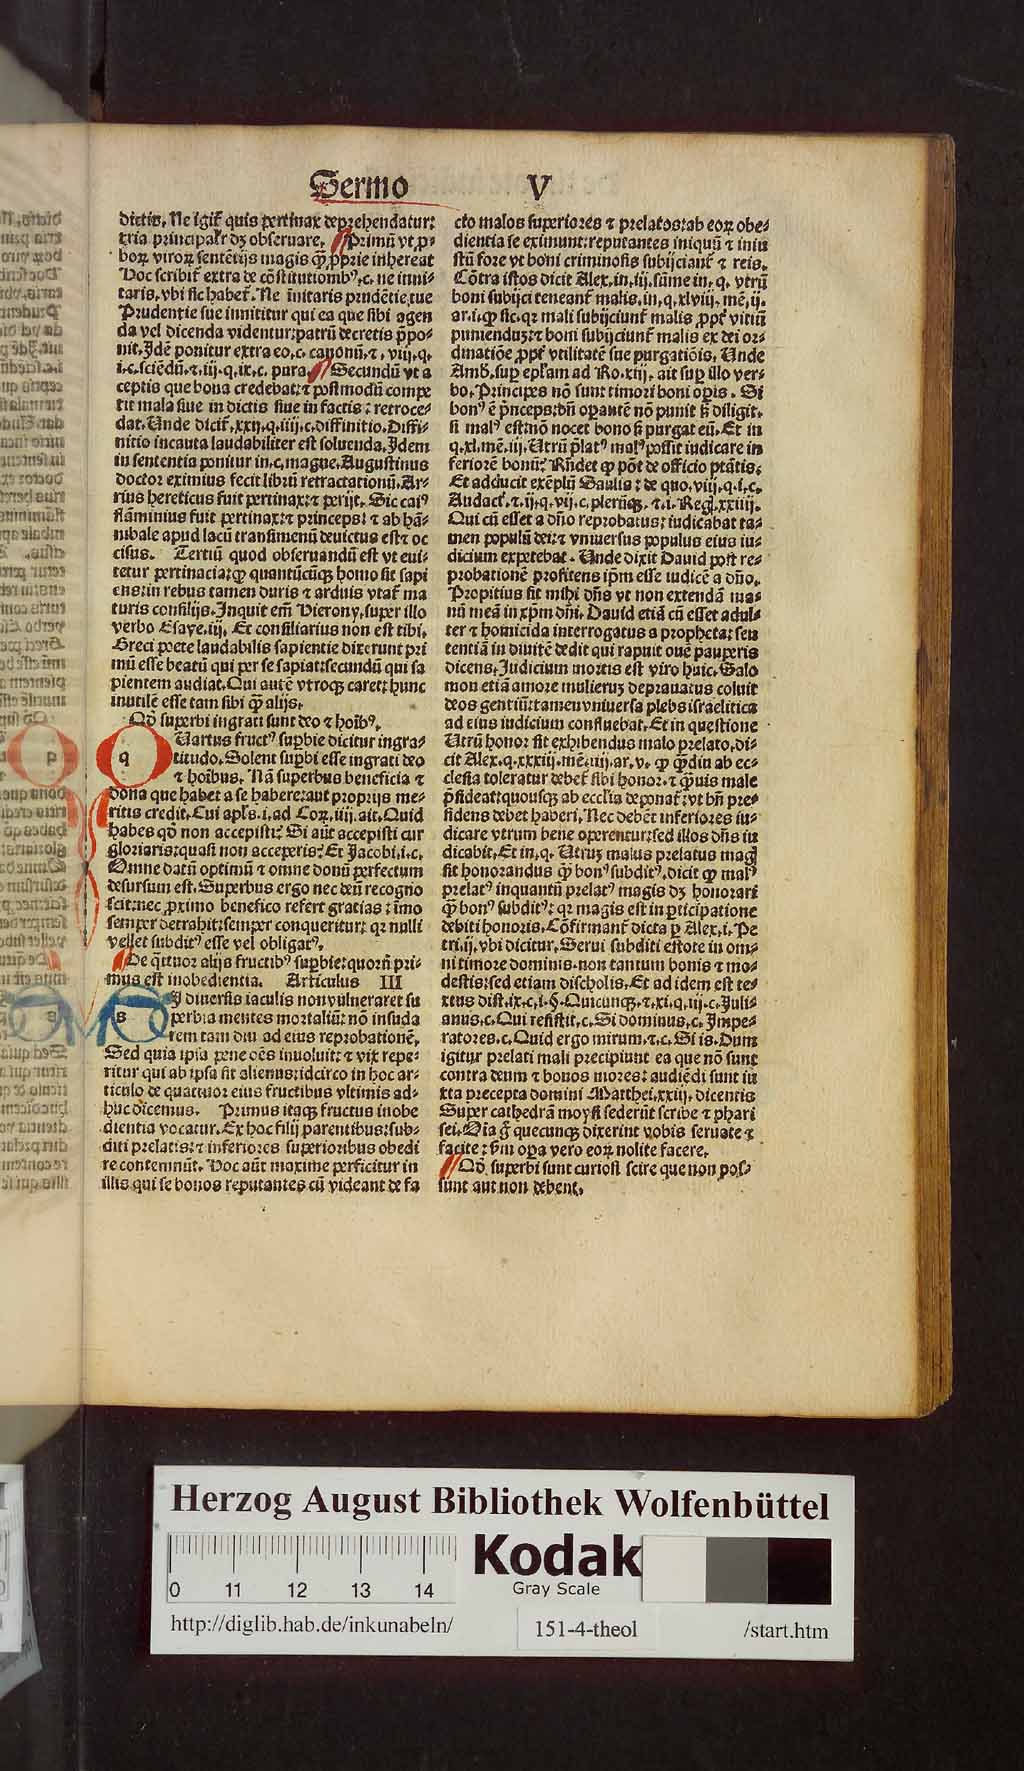 Sermo V
dictis. Ne igit̃ quis pertinax deprehendatur:
tria principalr̃ dꝫ obseruare. Primũ vt ꝓ-
boꝝ viroꝝ sentẽtijs magis q̃ꝫ ꝓprie inhereat
Hoc scribit̃ extra de cõstitutionibꝰ. c. ne inni-
taris. vbi sic habet̃. Ne ĩnitaris prudẽtie tue
Prudentie sue innititur qui ea que sibi agen
da vel dicenda videntur: patrũ decretis p̃po-
nit. Idẽ ponitur extra eo. c. canonũ. ⁊. viij. q.
i. c. sciẽdũ. ⁊. iij. q. ix. c. pura. Secundũ vt a
ceptis que bona credebat: ⁊ postmodũ compe
rit mala siue in dictis siue in factis: retroce-
dat. Unde dicit̃. xxij. q. iiij. c. diffinitio. Diffi-
nitio incauta laudabiliter est soluenda. Idem
in sententia ponitur in. c. magne. Augustinus
doctor eximius fecit librũ retractationũ. Ar-
rius hereticus fuit pertinax: ⁊ perijt. Sic caiꝰ
flãminius fuit pertinax: ⁊ princeps: ⁊ ab hã-
nibale apud lacũ transimenũ deuictus est: ⁊ oc
cisus. Tertiũ quod obseruandũ est vt eui-
tetur pertinacia: ꝙ quantũcũqꝫ homo sit sapi
ens: in rebus tamen duris ⁊ arduis vtat̃ ma
turis consilijs. Inquit em̃ Hierony. super illo
verbo Esaye. iij. Et consiliarius non est tibi.
Greci poete laudabilis sapientie dixerunt pri
mũ esse beatũ qui per se sapiat: secundũ qui sa
pientem audiat. Qui autẽ vtroqꝫ caret: hunc
inutilẽ esse tam sibi q̃ꝫ alijs.
Qđ superbi ingrati sunt deo ⁊ hoĩbꝰ.
q Uartus fructꝰ superbie dicitur ingra-
titudo. Solent supbi esse ingrati deo
⁊ hoĩbus. Nã superbus beneficia ⁊
dona que habet a se habere: aut proprijs me-
ritis credit. Cui apl̃s. i. ad Coꝝ. iiij. ait. Quid
habes qđ non accepisti: Si aũt accepisti cur
gloriaris: quasi non acceperis: Et Jacobi. i. c.
Omne datũ optimũ ⁊ omne donũ perfectum
desursum est. Superbus ergo nec deũ recogno
scit: nec proximo benefico refert gratias: ĩmo
semper detrahit: semper conqueritur: qꝛ nulli
vellet subditꝰ esse vel obligatꝰ.
De q̃ttuor alijs fructibꝰ supbie: quoꝝ pri-
mus est inobedientia. Articulus III
s I diuersis iaculis non vulneraret su
perbia mentes mortaliũ: nõ insuda
rem tam diu ad eius reprobationẽ.
Sed quia ipsa pene oẽs inuoluit: ⁊ vix repe-
ritur qui ab ipsa sit alienus: idcirco in hoc ar-
ticulo de quattuor eius fructibus vltimis ad-
huc dicemus. Primus itaqꝫ fructus inobe
dientia vocatur. Ex hoc filij parentibus: sub-
diti prelatis: ⁊ inferiores superioribus obedi
re contemnũt. Hoc aũt maxime perficitur in
illis qui se bonos reputantes cũ videant de fa
cto malos superiores ⁊ prelatos: ab eoꝝ obe-
dientia se eximunt: reputantes iniquũ ⁊ iniu
stũ fore vt boni criminosis subijciant̃ ⁊ reis.
Cõtra istos dicit Alex. in. iij. sũme in. q. vtrũ
boni subijci teneant̃ malis. in. q. xlviij. mẽ. ij.
ar. i. ꝙ sic. qꝛ mali subijciunt̃ malis ꝓpt̃ vitiũ
puniendũ: ⁊ boni subijciunt̃ malis ex dei or-
dinatiõe ꝓpt̃ vtilitatẽ sue purgatiõis. Unde
Amb. sup epl̃am ad Ro. xiij. ait sup illo ver-
bo. Principes nõ sunt timori boni opis. Si
bonꝰ ẽ p̃nceps: bñ operantẽ nõ punit sꝫ diligit.
si malꝰ est: nõ nocet bono sꝫ purgat eũ. Et in
q. xl. mẽ. iij. Utrũ p̃latꝰ malꝰ possit iudicare in
feriorẽ bonũ: Rñdet ꝙ põt de officio ptãtis.
Et adducit exẽplũ Saulis: de quo. viij. q. i. c.
Audact̃. ⁊. ij. q. vij. c. plerũqꝫ. ⁊. i. Reg. xxiiij.
Qui cũ esset a dño reprobatus: iudicabat ta-
men populũ dei: ⁊ vniuersus populus eius iu-
dicium expetebat. Unde dixit Dauid post re-
probationẽ profitens ip̃m esse iudicẽ a dño.
Propitius sit mihi dñs vt non extendã ma-
nũ meã in xp̃m dñi. Dauid etiã cũ esset adul-
ter ⁊ homicida interrogatus a propheta: sen
tentiã in diuitẽ dedit qui rapuit ouẽ pauperis
dicens. Iudicium mortis est viro huic. Salo
mon etiã amore mulierũ deprauatus coluit
deos gentiũ: tamen vniuersa plebs israelitica
ad eius iudicium confluebat. Et in questione
Utrũ honor sit exhibendus malo prelato. di-
cit Alex. q. xxxiij. mẽ. iij. ar. v. ꝙ q̃ꝫdiu ab ec-
clesia toleratur debet̃ sibi honor: ⁊ q̃ꝫuis male
p̃sideat: quousqꝫ ab eccl̃ia deponat̃: vt bñ pre-
sidens debet haberi. Nec debẽt inferiores iu-
dicare vtrum bene operentur: sed illos dñs iu
dicabit. Et in. q. Utrum malus prelatus mag̃
sit honorandus q̃ꝫ bonꝰ subditꝰ. dicit ꝙ malꝰ
prelatꝰ inquantũ prelatꝰ magis dꝫ honorari
q̃ꝫ bonꝰ subditꝰ: qꝛ magis est in pticipatione
debiti honoris. Cõfirmant̃ dicta p Alex. i. Pe
tri. ij. vbi dicitur. Serui subditi estote in om-
ni timore dominis. non tantum bonis ⁊ mo-
destis: sed etiam discholis. Et ad idem est te-
xtus dist. ix. c. i. §. Quicunqꝫ. ⁊. xi. q. iij. c. Juli-
anus. c. Qui resistit. c. Si dominus. c. Impe-
ratores. c. Quid ergo mirum. ⁊. c. Si is. Dum
igitur prelati mali precipiunt ea que nõ sunt
contra deum ⁊ bonos mores: audiẽdi sunt iu
xta precepta domini Matthei. xxiij. dicentis
Super cathedrã moysi sederũt scribe ⁊ phari
sei. Oĩa g̃ quecunqꝫ dixerint vobis seruate ⁊
facite: sm̃ opa vero eoꝝ nolite facere.
Qđ superbi sunt curiosi scire que non pos-
sunt aut non debent.
Herzog August Bibliothek Wolfenbüttel
0 11 12 13 14
Kodak
Gray Scale
http://diglib.hab.de/inkunabeln/
151-4-theol
/start.htm